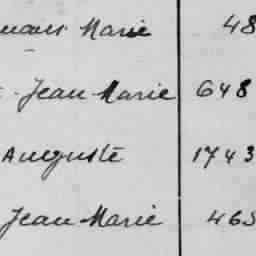 Marie 48
Jean Marie 648
Auguste 1743
Jean Marie 465